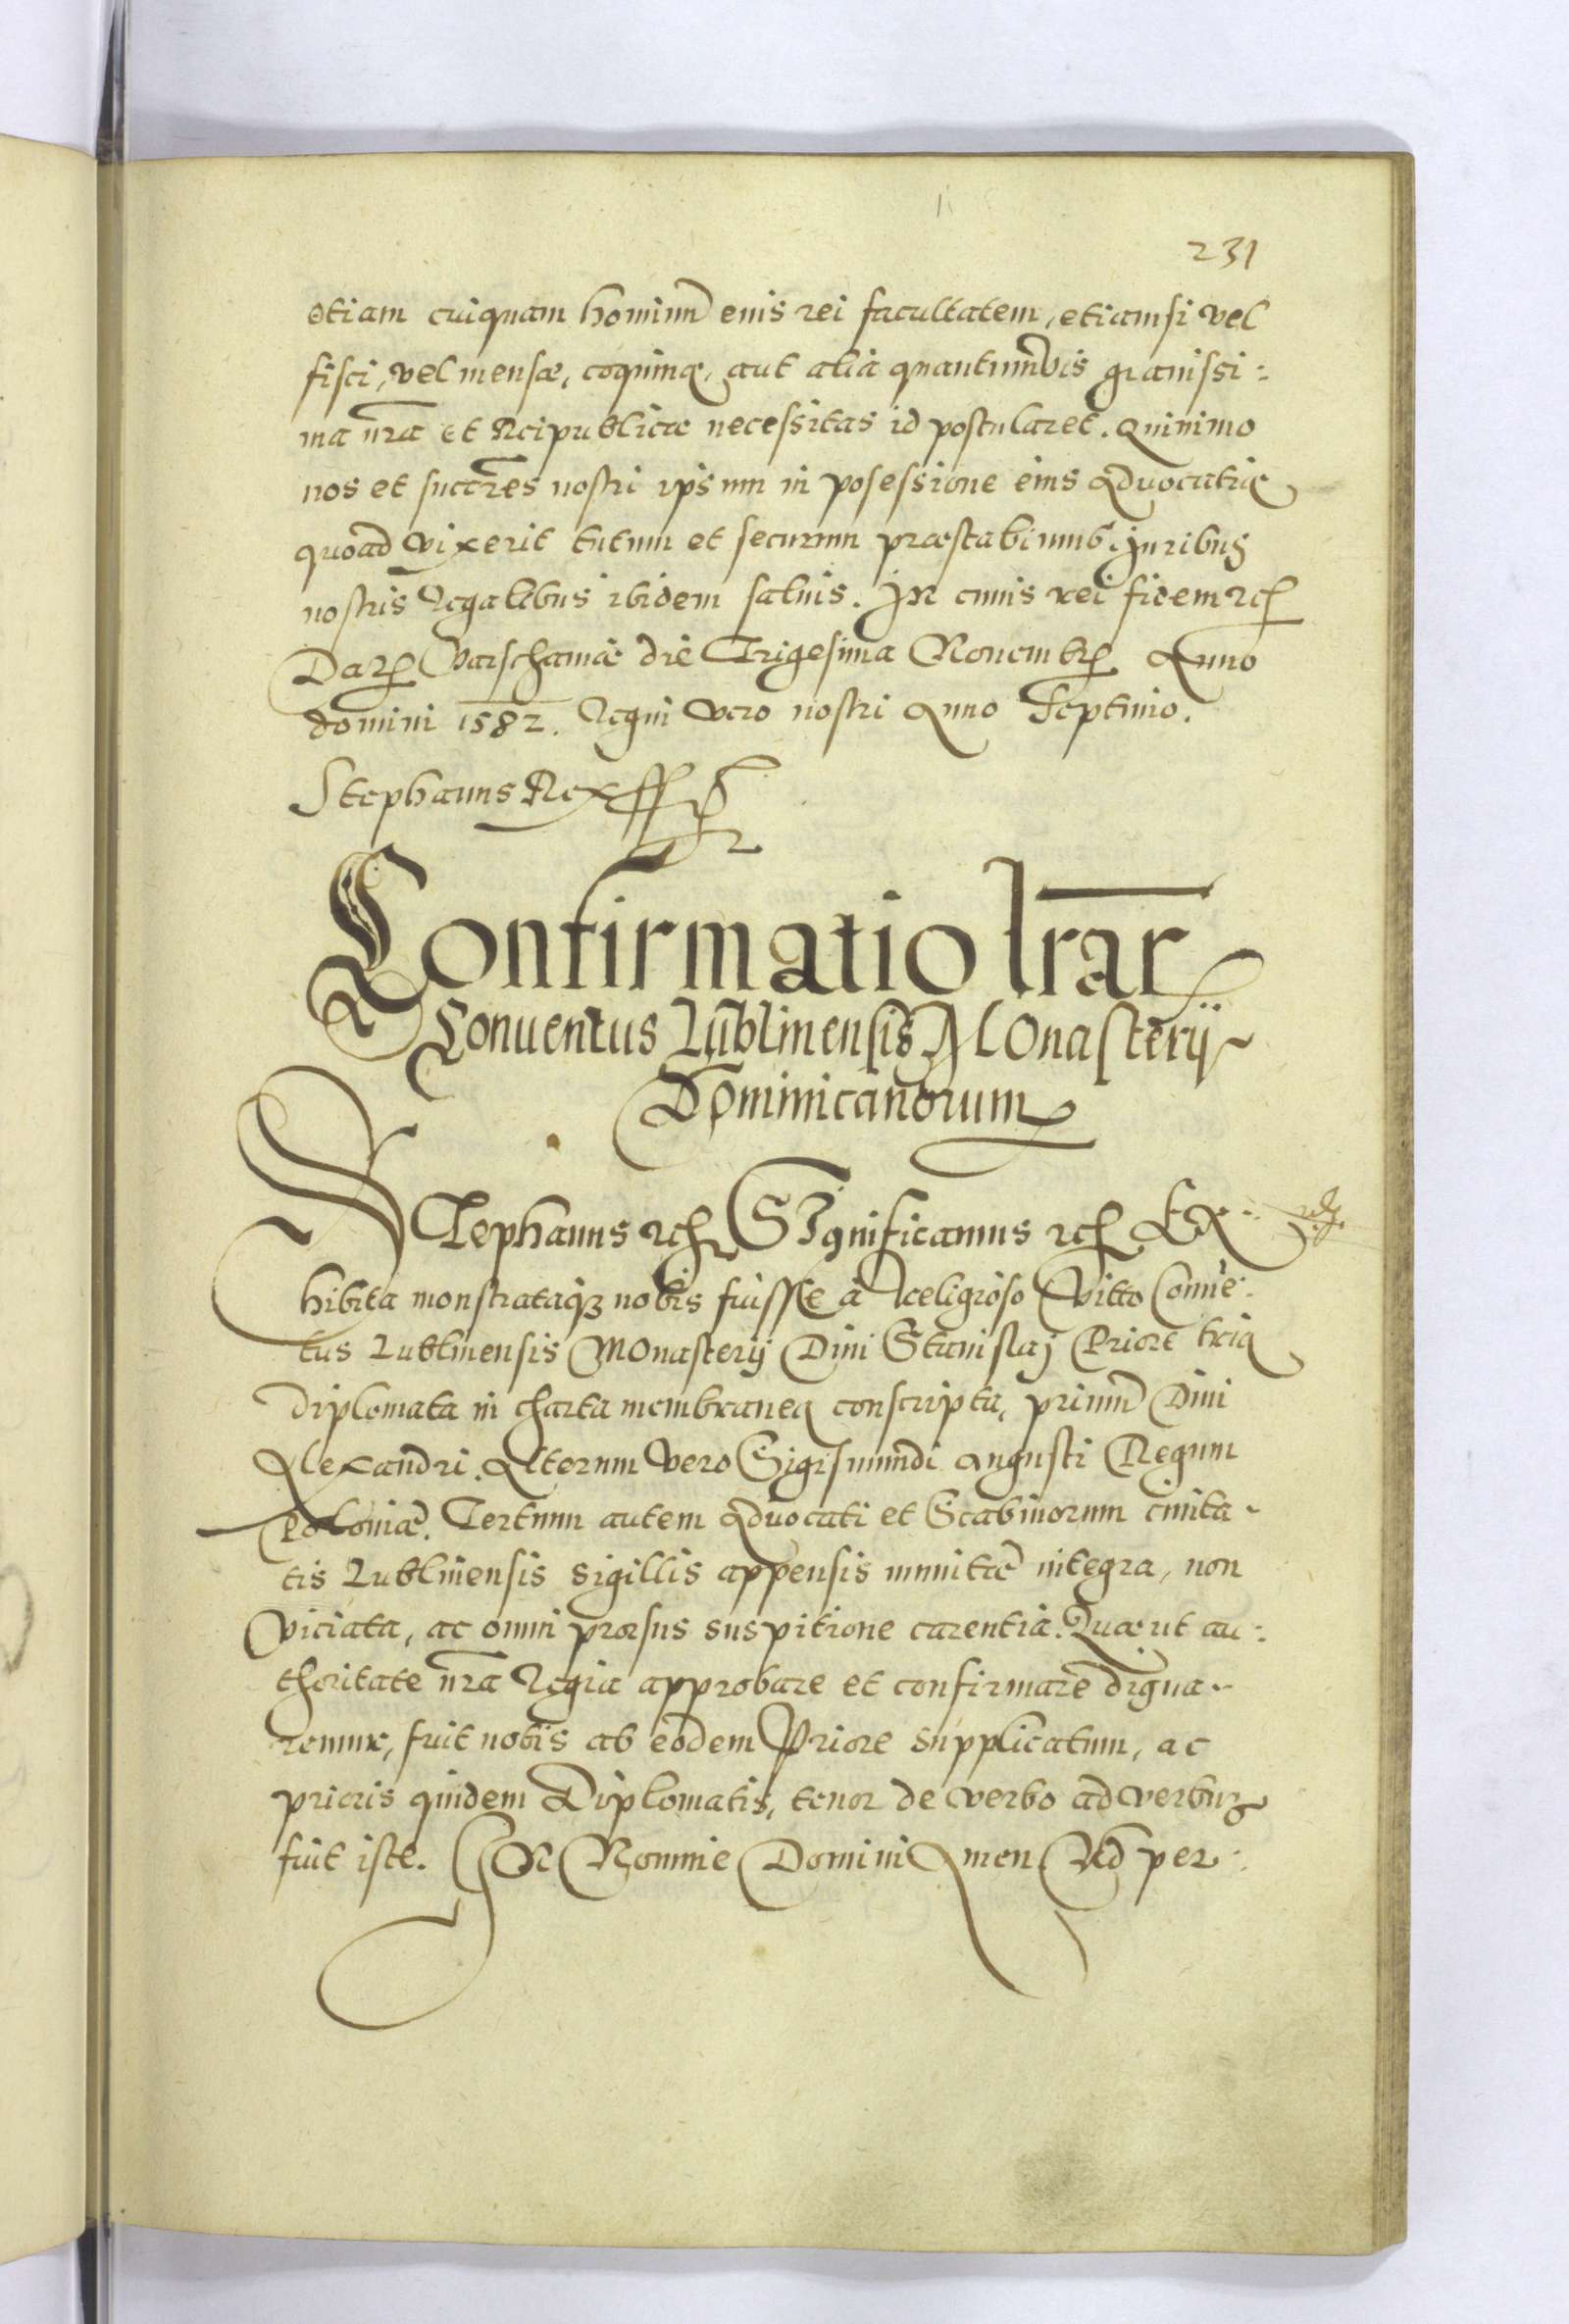 231
etiam cuiquam hominũ eius rei facultatem, etiamsi vel
fisci, vel mensæ, coquinæ, aut alia quantumvis grauissi:
ma nr̃a et Reipublicæ necessitas id postularet. Quinimo
nos et succr̃es nostri ipsum in posessione eius Aduocatiæ
quoad vixerit tutum et securum præstabimus. Juribus
nostris Regalibus ibidem saluis. In cuius rei fidem etc
Dat Varschauiæ die Trigesima Nouembr Anno
domini 1582. Regni vero nostri Anno Septimo.
Stephanus Rex
Confirmatio lrãr
Conuentus Lublinensis Monasterij
Dominicanorum
Stephanus etc Significamus etc Ex:
hibita monstrataq3 nobis fuisse a Religioso Vitto Conuẽ:
tus Lublinensis Monasterij Diui Stanislaj Priore tria
diplomata in charta membranea conscripta, primũ Diui
Alexandri. Alterum vero Sigismundi Augusti Regum
Poloniæ. Tertium autem Aduocati et Scabinorum ciuita-
tis Lublinensis sigillis appensis munitæ integra, non
viciata, ac omni prorsus suspitione carentia. Quæ ut au:
thoritate nr̃a Regia approbare et confirmare digna-
remur, fuit nobis ab eodem Priore supplicatum, ac
prioris quidem Diplomatis, tenor de verbo ad verbum
fuit iste. In Nomine Domini Amen Ad per: